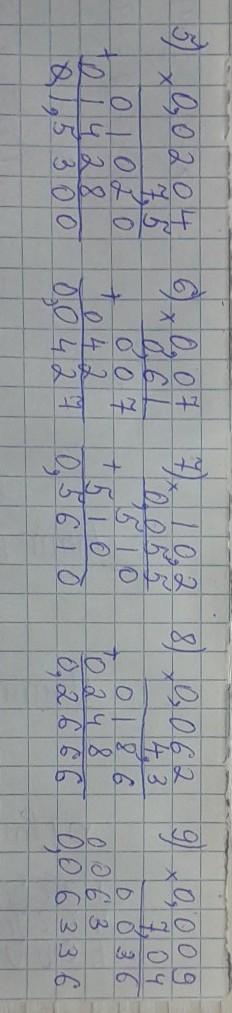 5) × 0,0204
7,5
01020
+ 01428
0,15300
6) × 0,07
0,61
007
+ 042
0,0427
7) × 10,2
0,055
510
+ 510
0,5610
8) × 0,062
4,3
0186
+ 0248
0,2666
9) × 0,009
7,04
0036
0063
0,06336